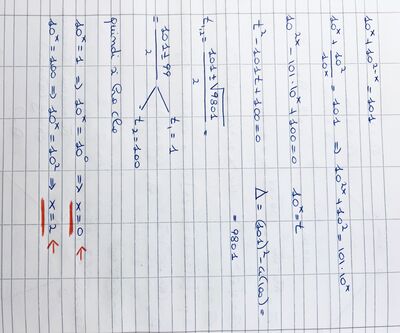 10^x + 10^(2-x) = 101
10^x + 10^2/10^x = 101 ⇒ 10^(2x) + 10^2 = 101·10^x
10^(2x) - 101·10^x + 100 = 0    10^x = t
t^2 - 101t + 100 = 0    Δ = (101)^2 - 4(100) =
= 9801
t_1,2 = (101 ± √9801)/2 =
= (101 ± 99)/2    t_1 = 1
t_2 = 100
quindi si ha che
10^x = 1 ⇒ 10^x = 10^0 ⇒ x = 0 ←
10^x = 100 ⇒ 10^x = 10^2 ⇒ x = 2 ←